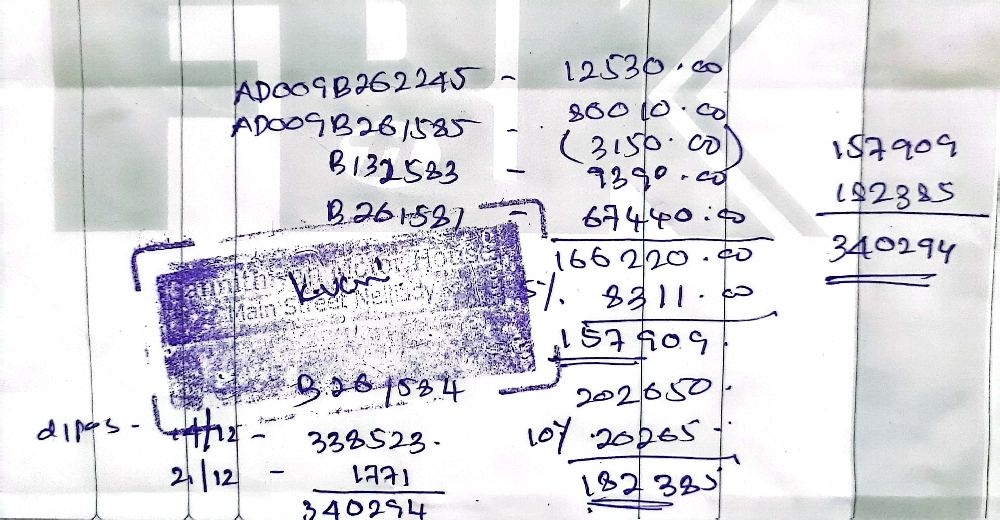 AD009B262245 - 12530.00
AD009B261585 - 80010.00
(3150.00)
B132583 - 9390.00
B261587 - 67440.00
166220.00
5%. 8311.00
157909.
B261584 202650.
10% 20265-
182385
157909
182385
340294
kvcni
Main Street Nelliady
dipos - 14/12 - 338523.
21/12 - 1771
340294